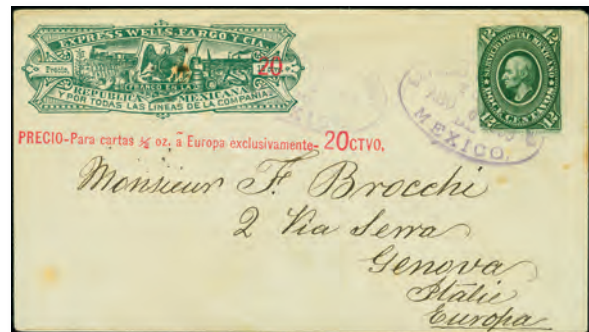 EXPRESS WELLS, FARGO Y CIA.
Precio, 20
FRANCO EN LA
REPUBLICA MEXICANA
Y POR TODAS LAS LINEAS DE LA COMPAÑIA.
SERVICIO POSTAL MEXICANO
12 12
DOCE CENTAVOS
12 12
MEXICO.
PRECIO-Para cartas ½ oz. á Europa exclusivamente- 20CTVO.
Monsieur F. Brocchi
2 Via Serra
Genova
Italie
Europa